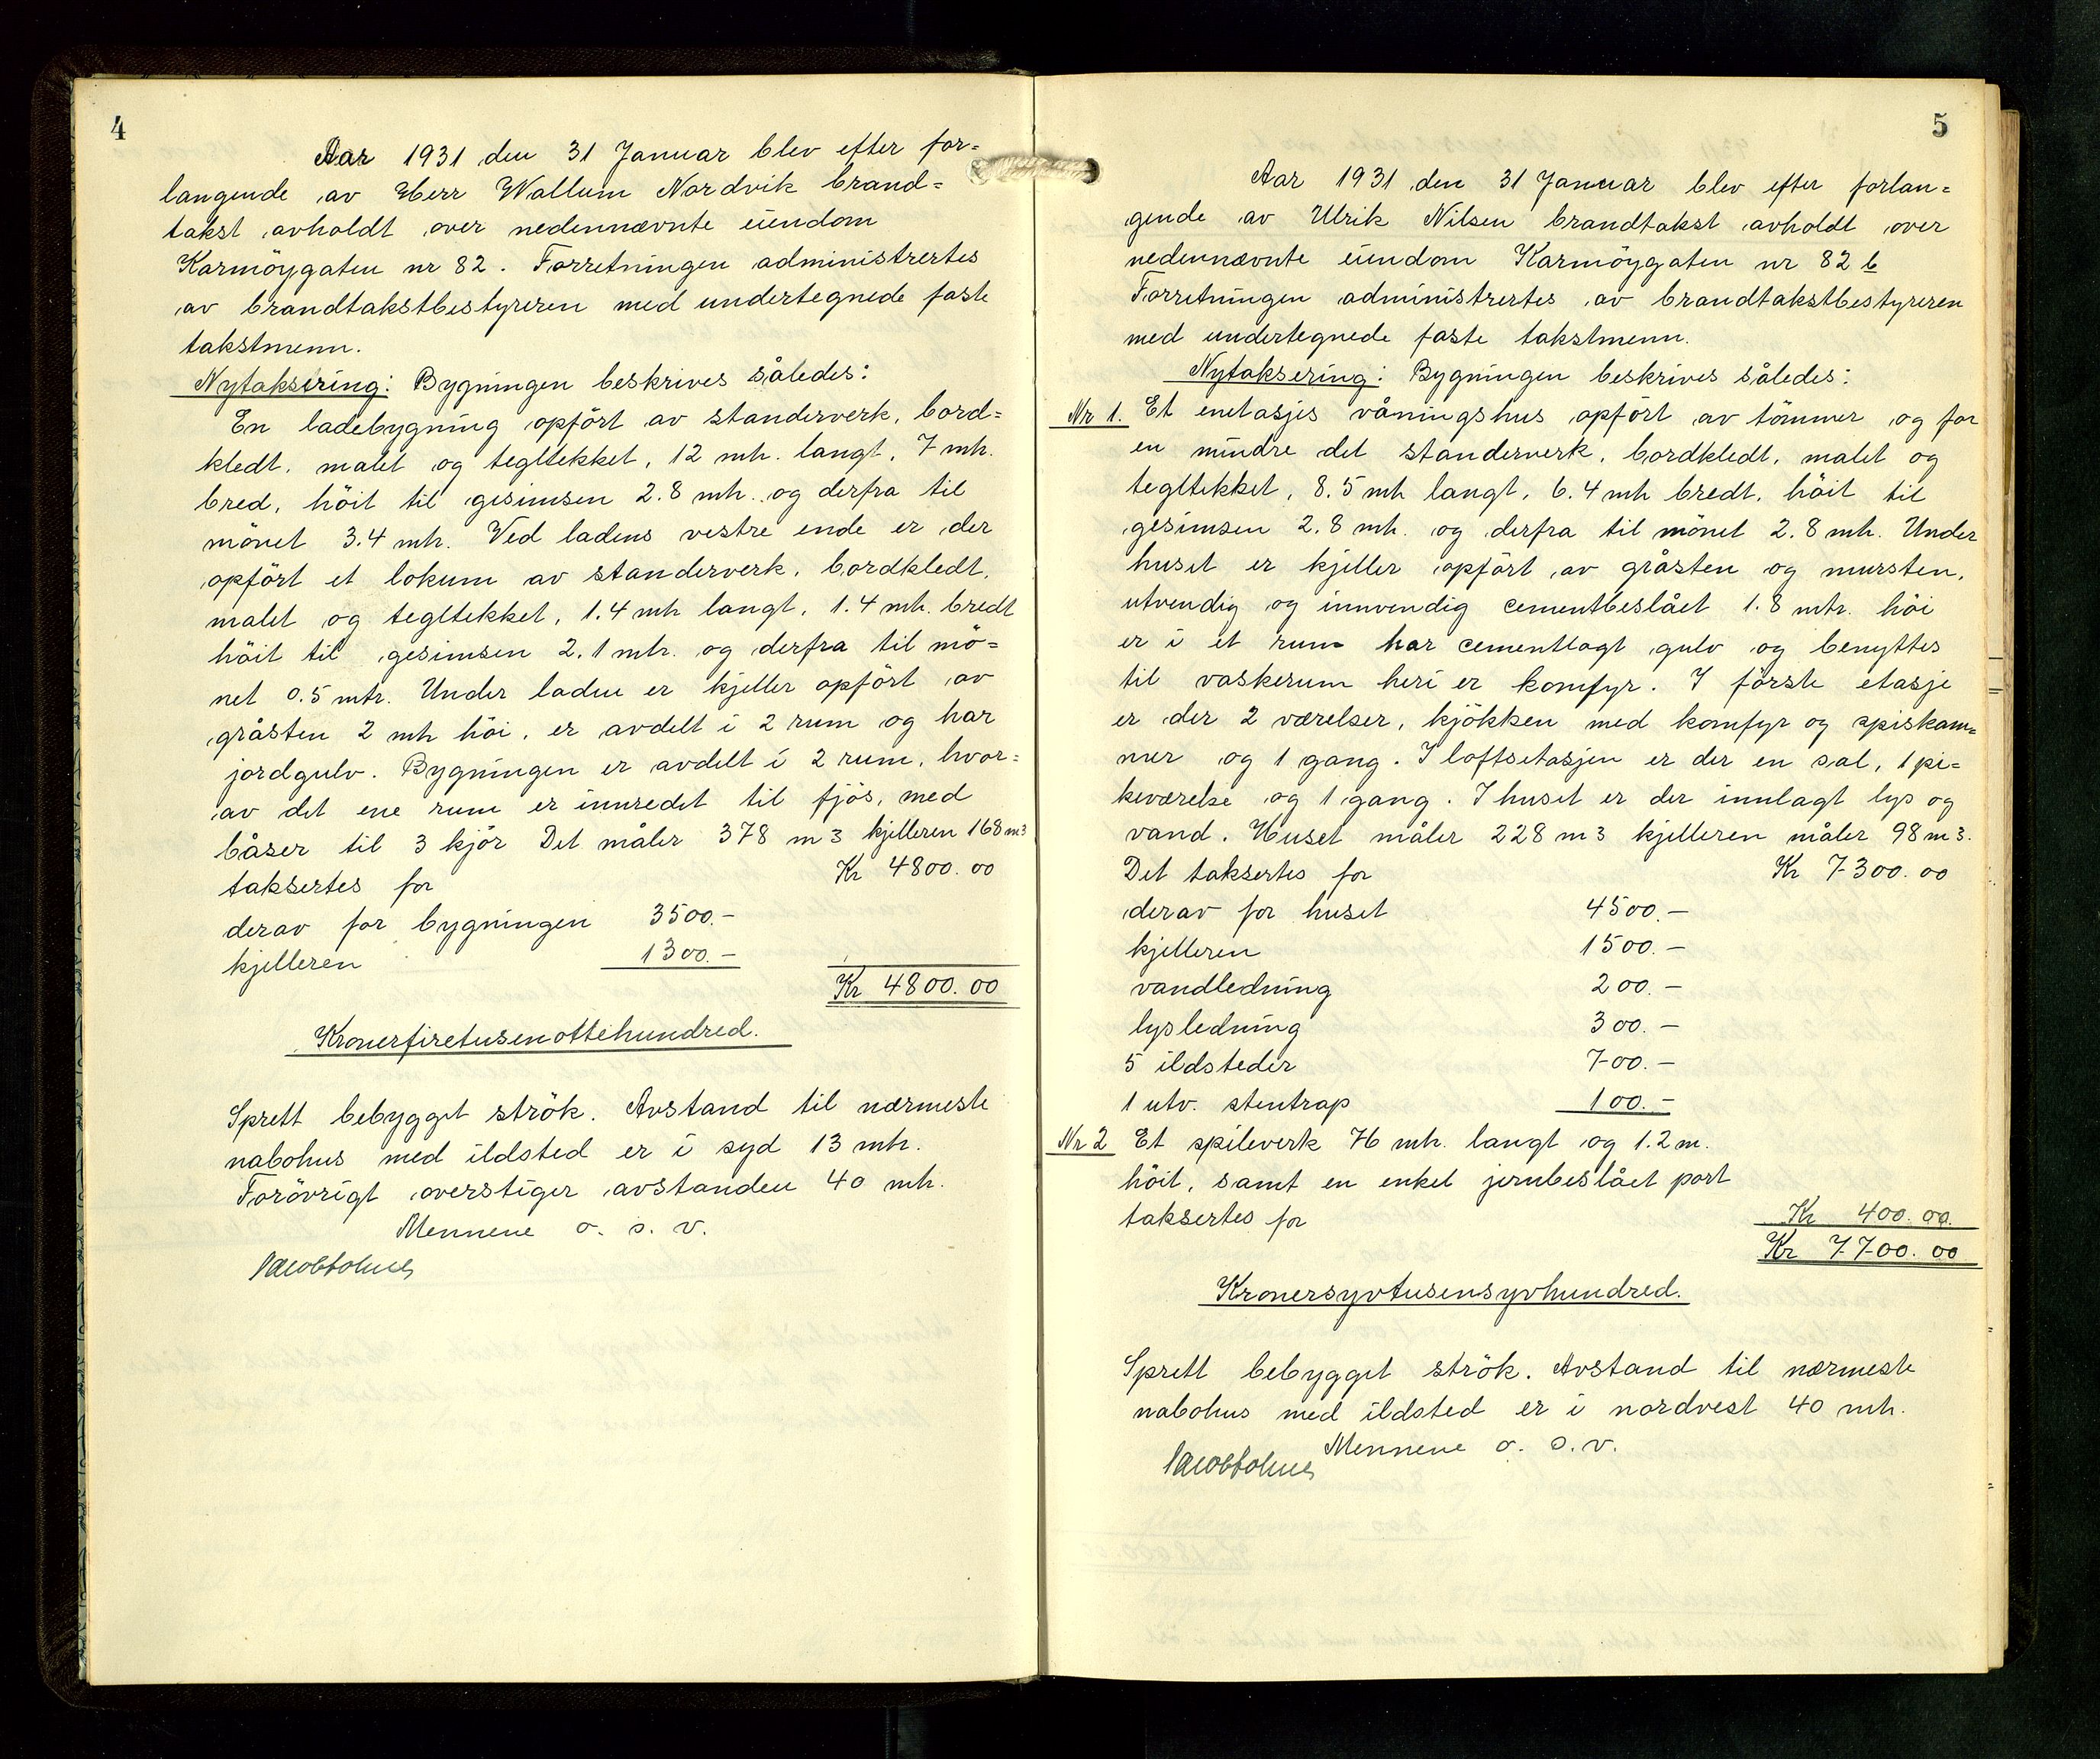 4
Aar 1931 den 31 Januar blev efter for=
langende av Herr Wallum Nordvik brand=
takst avholdt over nedennævnte eiendom
Karmöygaten nr 82. Forretningen administrertes
av brandtakstbestyreren med undertegnede faste
takstmenn.
Nytaksering: Bygningen beskrives således:
En ladebygning opfört av standerverk, bord=
kledt, malet og tegltekket, 12 mtr. langt, 7 mtr.
bred, höit til gesimsen 2.8 mtr. og derfra til
mönet 3.4 mtr. Ved ladens vestre ende er der
opfört et lokum av standerverk, bordkledt,
malet og tegltekket, 1.4 mtr langt, 1.4 mtr. bredt
höit til gesimsen 2.1 mtr. og derfra til mö=
net 0.5 mtr. Under laden er kjeller opfört av
gråsten 2 mtr höi, er avdelt i 2 rum og har
jordgulv. Bygningen er avdelt i 2 rum, hvor=
av det ene rum er innredet til fjös, med
båser til 3 kjör Det måler 378 m3 kjelleren 168 m3
taksertes for Kr 4800.00
derav for bygningen 3500.-
kjelleren 1300.-
Kr 4800.00
Kronerfiretusenottehundred.
Sprett bebygget strök. Avstand til nærmeste
nabohus med ildsted er i syd 13 mtr.
Forövrigt overstiger avstanden 40 mtr.
Mennene o. s. v.
5
Aar 1931 den 31 Januar blev efter forlan=
gende av Ulrik Nilsen brandtakst avholdt over
nedennævnte eiendom Karmöygaten nr 82 b
Forretningen administrertes av brandtakstbestyreren
med undertegnede faste takstmenn.
Nytaksering: Bygningen beskrives således:
Nr 1. Et enetasjes våningshus opfört av tömmer og for
en mindre del standerverk, bordkledt, malet og
tegltekket, 8.5 mtr langt, 6.4 mtr bredt, höit til
gesimsen 2.8 mtr. og derfra til mönet 2.8 mtr. Under
huset er kjeller opfört av gråsten og mursten,
utvendig og innvendig cementbeslået 1.8 mtr. höi
er i et rum har cementlagt gulv og benyttes
til vaskerum heri er komfyr. I förste etasje
er der 2 værelser, kjökken med komfyr og spiskam=
mer og 1 gang. I loftsetasjen er der en sal, 1 pi=
keværelse og 1 gang. I huset er der innlagt lys og
vand. Huset måler 228 m3 kjelleren måler 98 m3.
Det taksertes for Kr 7300.00
derav for huset 4500.-
kjelleren 1500.-
vandledning 200.-
lysledning 300.-
5 ildsteder 700.-
1 utv. stentrap 100.-
Nr 2 Et spileverk 76 mtr. langt og 1.2 m.
höit, samt en enkel jernbeslået port
taksertes for Kr 400.00.
Kr 7700.00
Kronersyvtusensyvhundred.
Sprett bebygget strök. Avstand til nærmeste
nabohus med ildsted er i nordvest 40 mtr.
Mennene o. s. v.